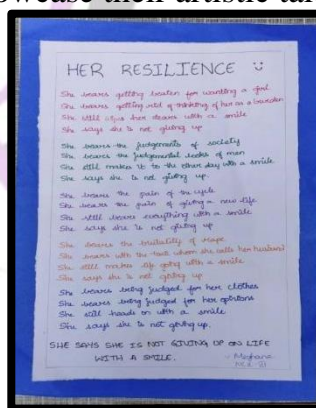 owcase their artistic tal
HER RESILIENCE
She bears getting beaten for wanting a girl
She bears getting rid of thinking of her as a burden
She still wipes her tears with a smile
She says she is not giving up
She bears the judgements of society
She bears the judgemental looks of men
She still makes it to the other day with a smile
She says she is not giving up.
She bears the pain of the cycle
She bears the pain of giving a new life
She still bears everything with a smile
She says she is not giving up
She bears the brutality of rape
She bears with the man whom she calls her husband
She still makes life going with a smile
She says she is not giving up
She bears being judged for her clothes
She bears being judged for her opinions
She still heads on with a smile
She says she is not giving up.
SHE SAYS SHE IS NOT GIVING UP ON LIFE
WITH A SMILE.
- Meghana